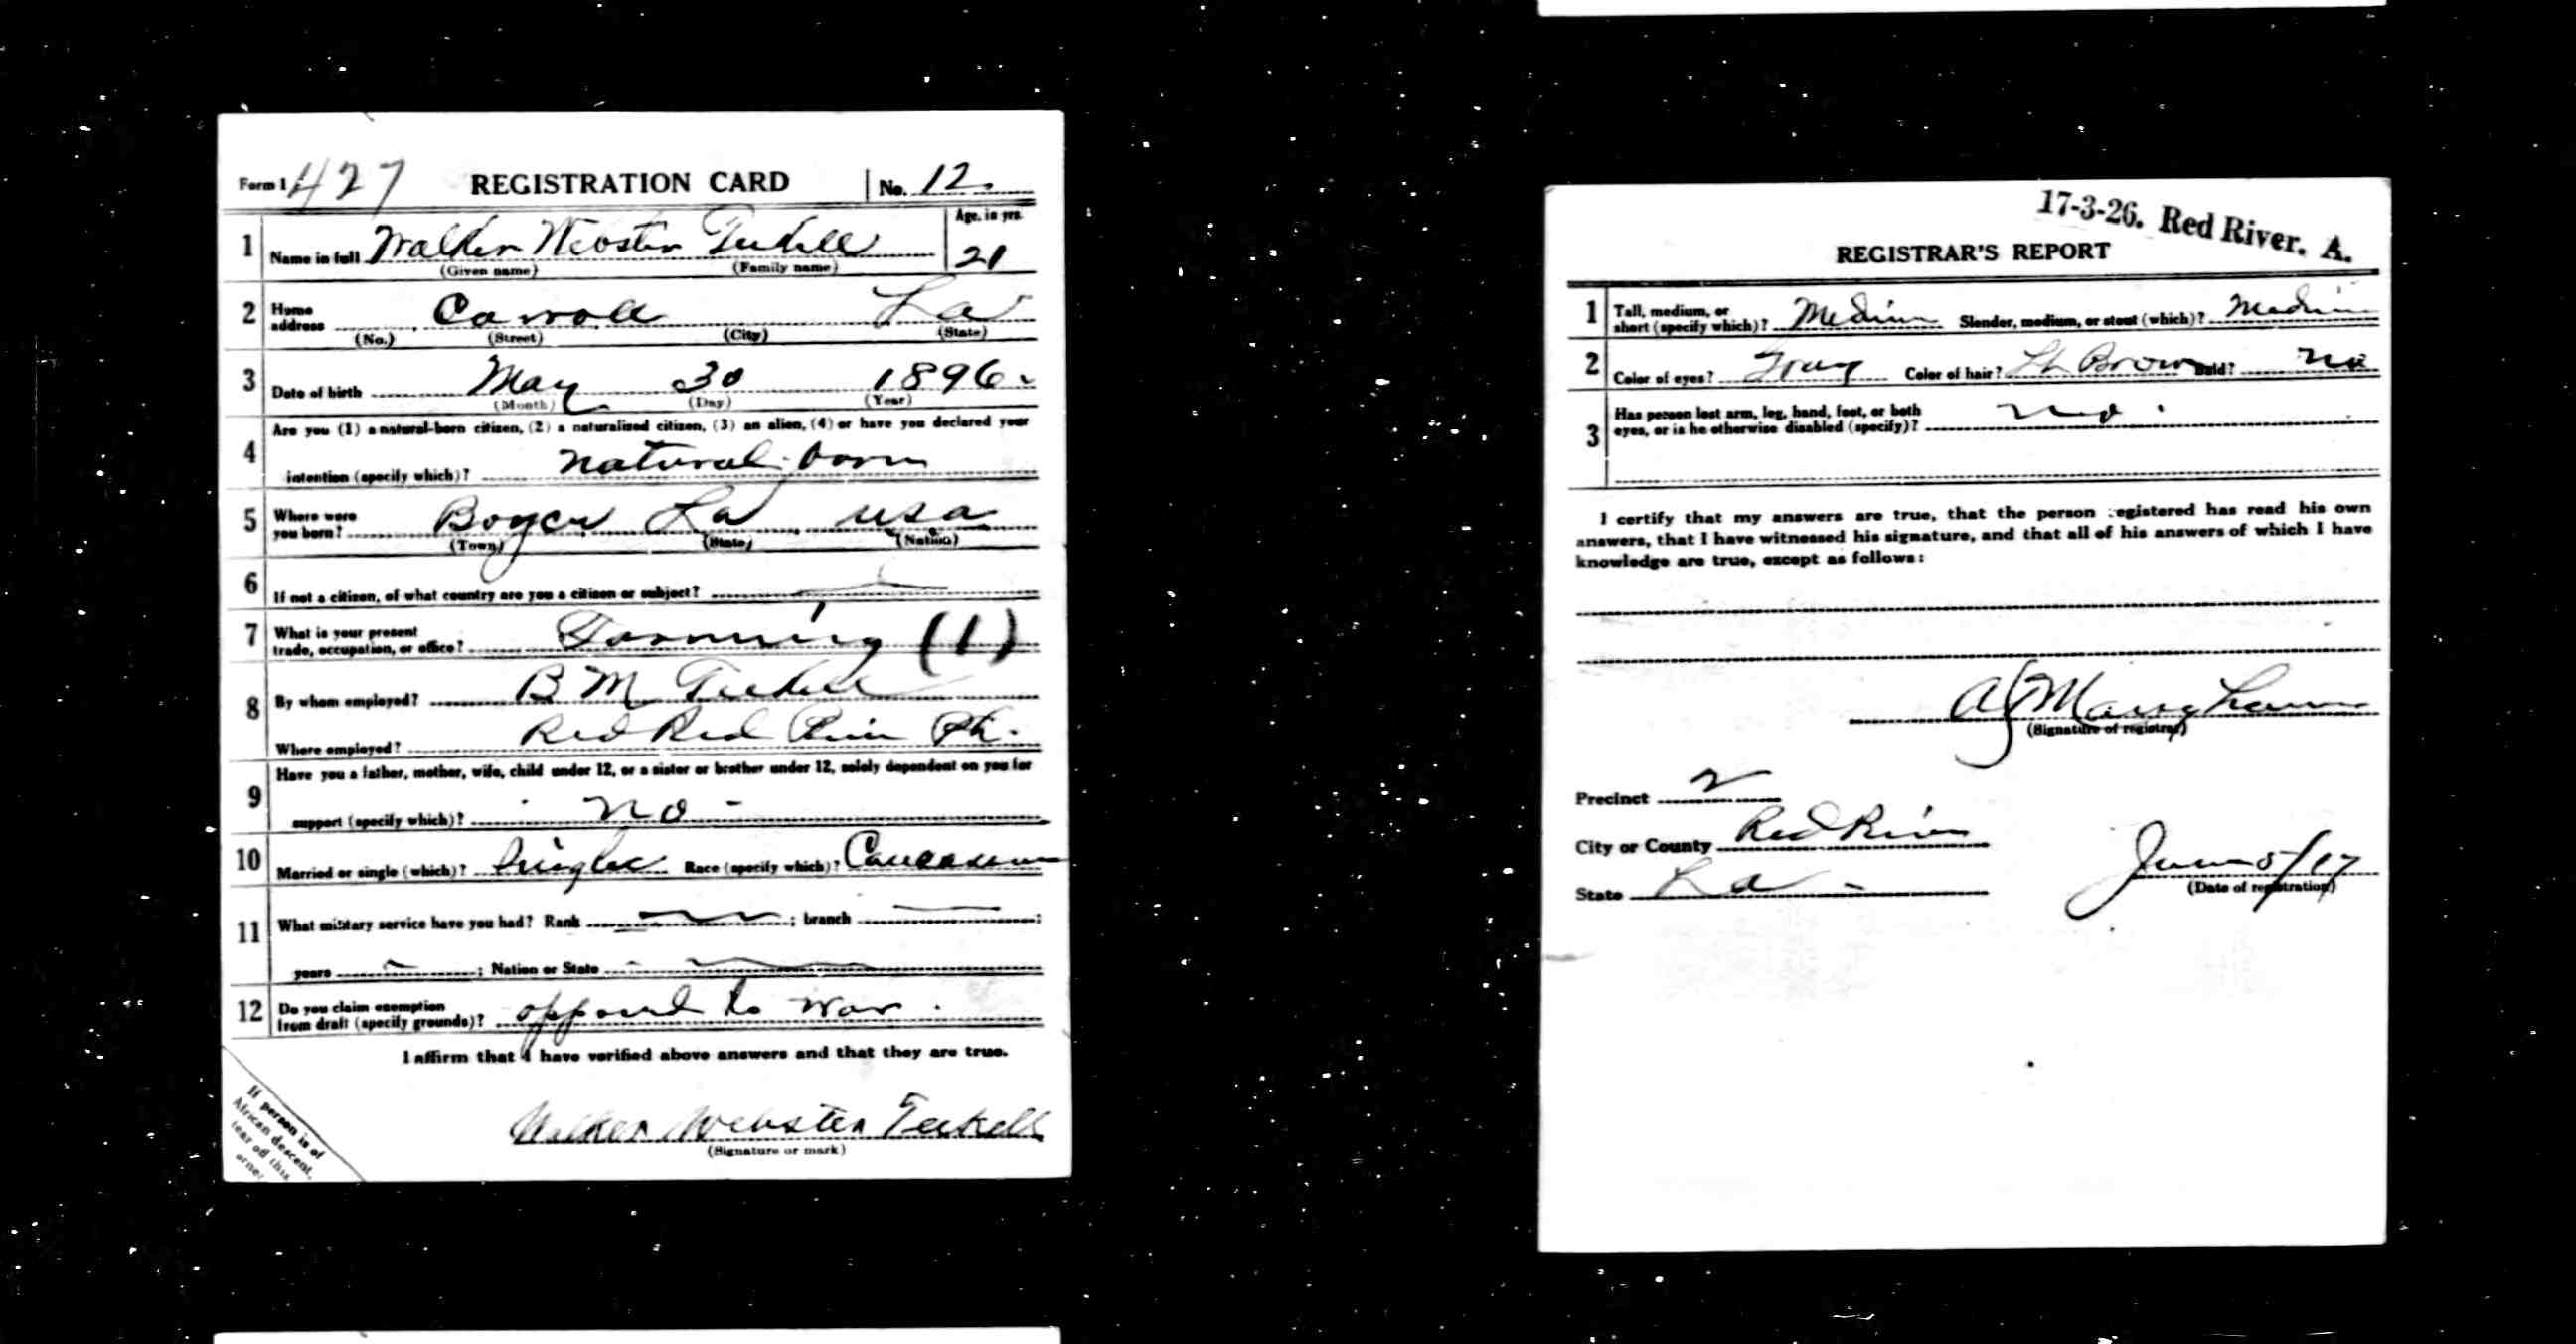 Form 1 427 REGISTRATION CARD No. 12.
1 Name in full Walker Webster Teekell Age, in yrs. 21
(Given name) (Family name)
2 Home address Carroll La
(No.) (Street) (City) (State)
3 Date of birth May 30 1896.
(Month) (Day) (Year)
4 Are you (1) a natural-born citizen, (2) a naturalized citizen, (3) an alien, (4) or have you declared your
intention (specify which)? natural-born
5 Where were you born? Boyce La usa
(Town) (State) (Nation)
6 If not a citizen, of what country are you a citizen or subject?
7 What is your present trade, occupation, or office? Farming (1)
8 By whom employed? B M Teekell
Where employed? Red Red River Ph.
9 Have you a father, mother, wife, child under 12, or a sister or brother under 12, solely dependent on you for
support (specify which)? no -
10 Married or single (which)? Single Race (specify which)? Caucasian
11 What military service have you had? Rank ; branch ;
years ; Nation or State
12 Do you claim exemption from draft (specify grounds)? opposed to war.
I affirm that I have verified above answers and that they are true.
Walker Webster Teekell
(Signature or mark)
If person is of
African descent,
tear off this
corner
17-3-26. Red River. A.
REGISTRAR'S REPORT
1 Tall, medium, or short (specify which)? Medium Slender, medium, or stout (which)? Medium
2 Color of eyes? Gray Color of hair? Lt Brown Bald? no
3 Has person lost arm, leg, hand, foot, or both eyes, or is he otherwise disabled (specify)? no.
I certify that my answers are true, that the person registered has read his own
answers, that I have witnessed his signature, and that all of his answers of which I have
knowledge are true, except as follows:
(Signature of registrar)
Precinct 2
City or County Red River
State La -
June 5/17
(Date of registration)